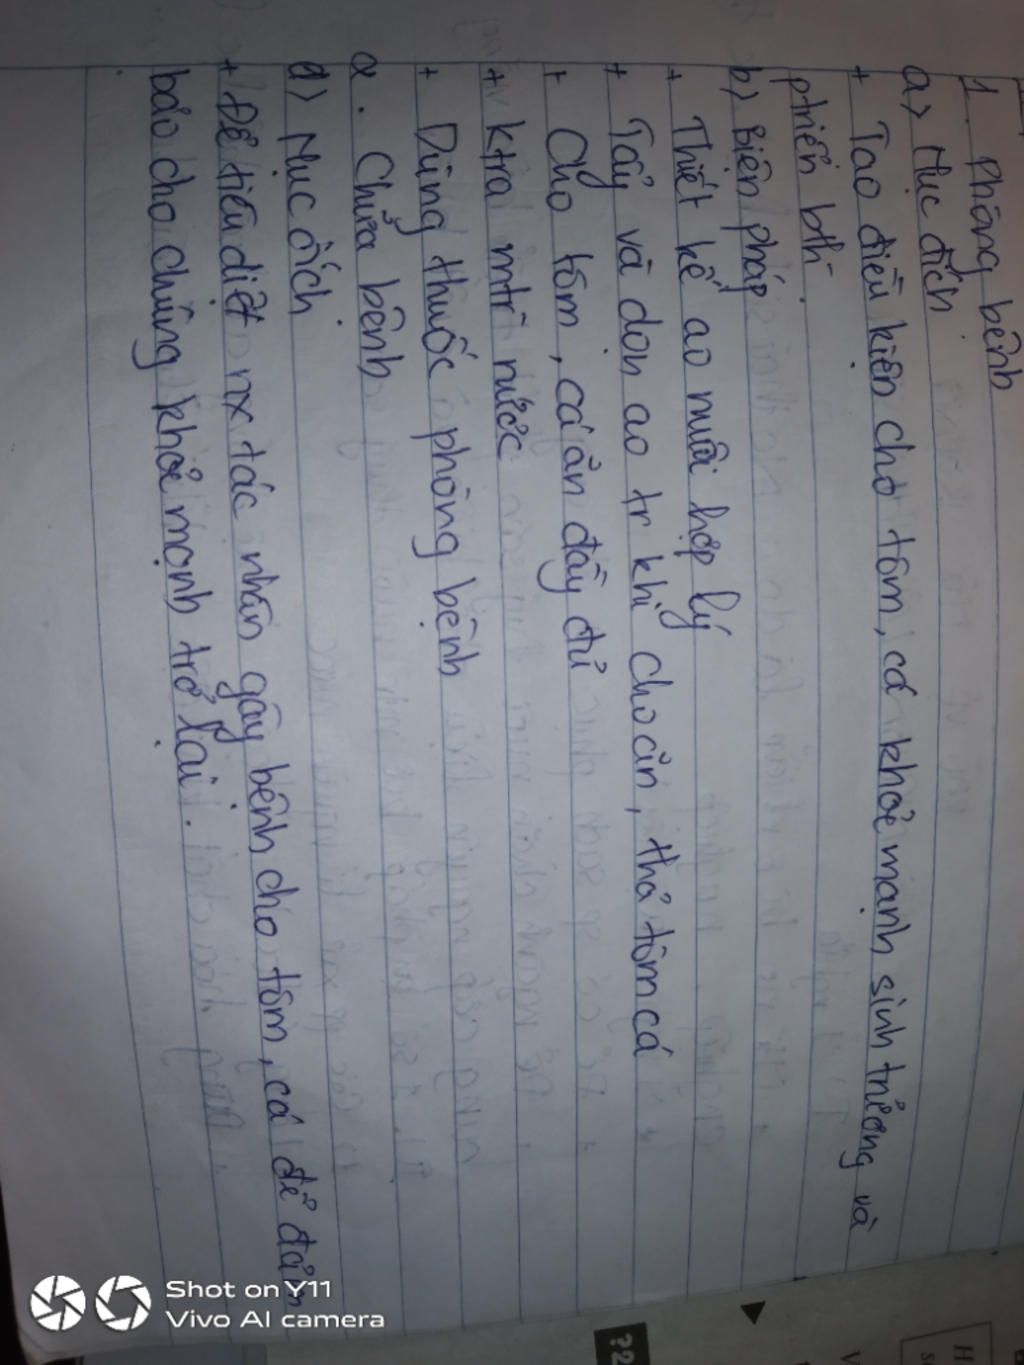 1. Phòng bệnh
a) Mục đích
+ Tạo điều kiện cho tôm, cá khoẻ mạnh sinh trưởng và
ptriển bth.
b) Biện pháp
+ Thiết kế ao nuôi hợp lý
+ Tẩy và dọn ao tr khi cho ăn, thả tôm cá
+ Cho tôm, cá ăn đầy đủ
+ ktra mtr nước
+ Dùng thuốc phòng bệnh
2. Chữa bệnh
a) Mục đích
+ Để tiêu diệt nx tác nhân gây bệnh cho tôm, cá để đảm
bảo cho chúng khoẻ mạnh trở lại.
Shot on Y11
Vivo AI camera
?2